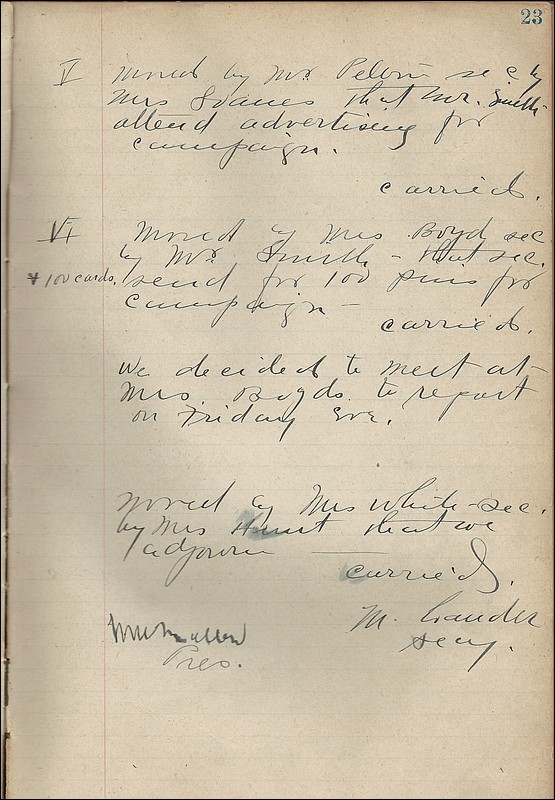 23
V moved by Mr. Pelvin sec by
Mrs that Mr. Smith
attend advertising for
campaign.
carried.
VI moved by Mrs Boyd sec
by Mr. Smith - that sec.
+ 100 cards. send for 100 pins for
campaign -
carried.
We decided to meet at
Mrs. Boyds to report
on Friday Eve.
moved by Mrs White - sec.
by Mrs Hunt that we
adjourn
carried.
M.
Secy.
Pres.